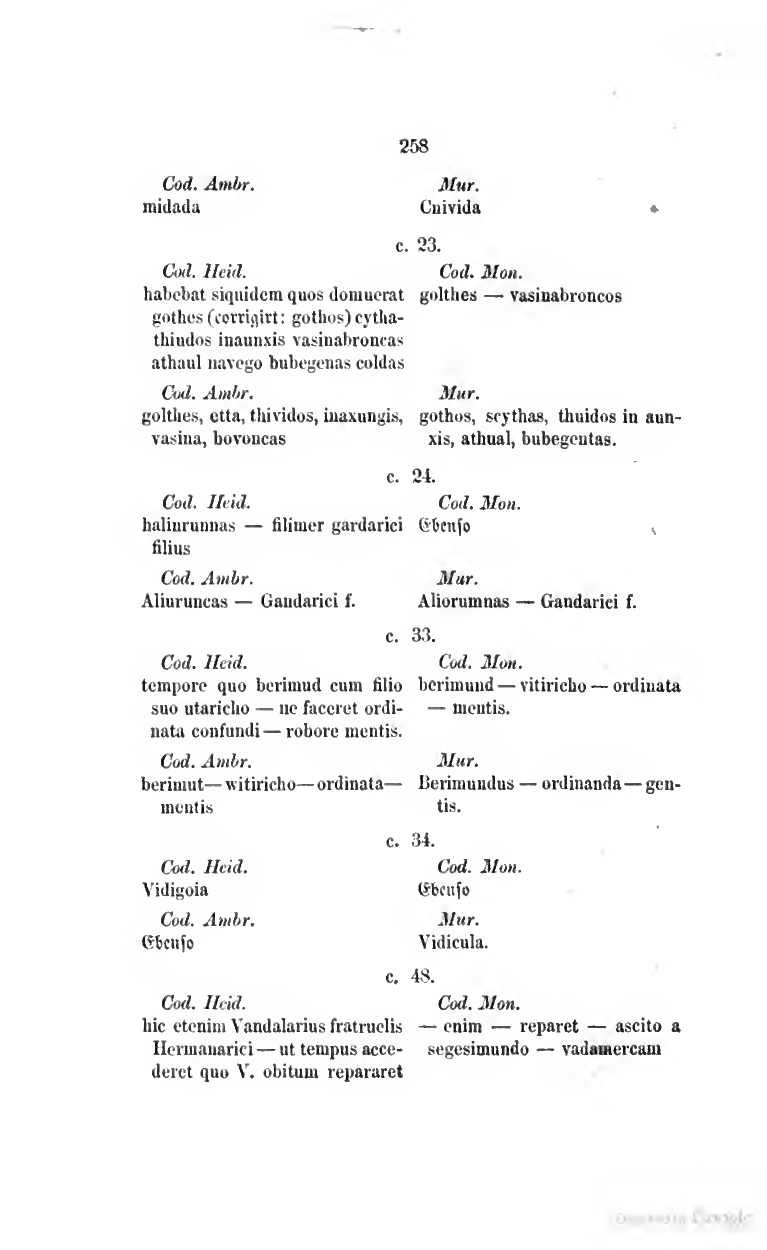 258
Cod. Ambr.
midada
Mur.
Cnivida
c. 23.
Cod. Heid.
habebat siquidem quos domuerat
gothes (corrigirt: gothos) cytha-
thiudos inaunxis vasinabroncas
athaul navego bubegenas coldas
Cod. Mon.
golthes — vasinabroncos
Cod. Ambr.
golthes, etta, thividos, inaxungis,
vasina, bovoncas
Mur.
gothos, scythas, thuidos in aun-
xis, athual, bubegentas.
c. 24.
Cod. Heid.
haliurunnas — filimer gardarici
filius
Cod. Mon.
Ebenso
Cod. Ambr.
Aliuruncas — Gandarici f.
Mur.
Aliorumnas — Gandarici f.
c. 33.
Cod. Heid.
tempore quo berimud cum filio
suo utaricho — ne faceret ordi-
nata confundi — robore mentis.
Cod. Mon.
berimund — vitiricho — ordinata
— mentis.
Cod. Ambr.
berimut— witiricho— ordinata—
mentis
Mur.
Berimundus — ordinanda — gen-
tis.
c. 34.
Cod. Heid.
Vidigoia
Cod. Mon.
Ebenso
Cod. Ambr.
Ebenso
Mur.
Vidicula.
c. 48.
Cod. Heid.
hic etenim Vandalarius fratruelis
Hermanarici — ut tempus acce-
deret quo V. obitum repararet
Cod. Mon.
— enim — reparet — ascito a
segesimundo — vadamercam
Google